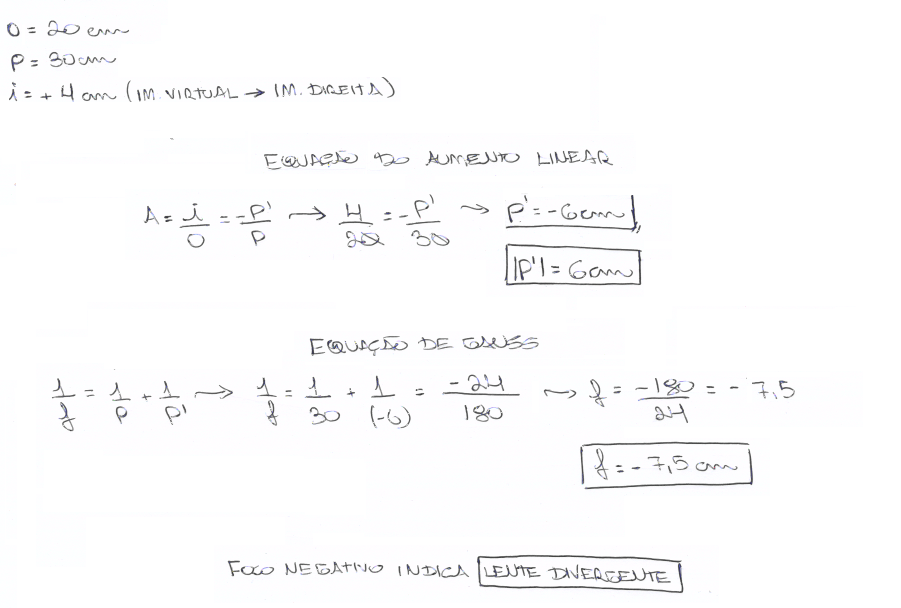 O = 20 cm
P = 30 cm
i = + 4 cm (IM. VIRTUAL → IM. DIREITA)
EQUAÇÃO DO AUMENTO LINEAR
A = i/O = -P'/P → 4/20 = -P'/30 → P' = -6 cm
|P'| = 6 cm
EQUAÇÃO DE GAUSS
1/f = 1/P + 1/P' → 1/f = 1/30 + 1/(-6) = -24/180 → f = -180/24 = -7,5
f = -7,5 cm
FOCO NEGATIVO INDICA LENTE DIVERGENTE